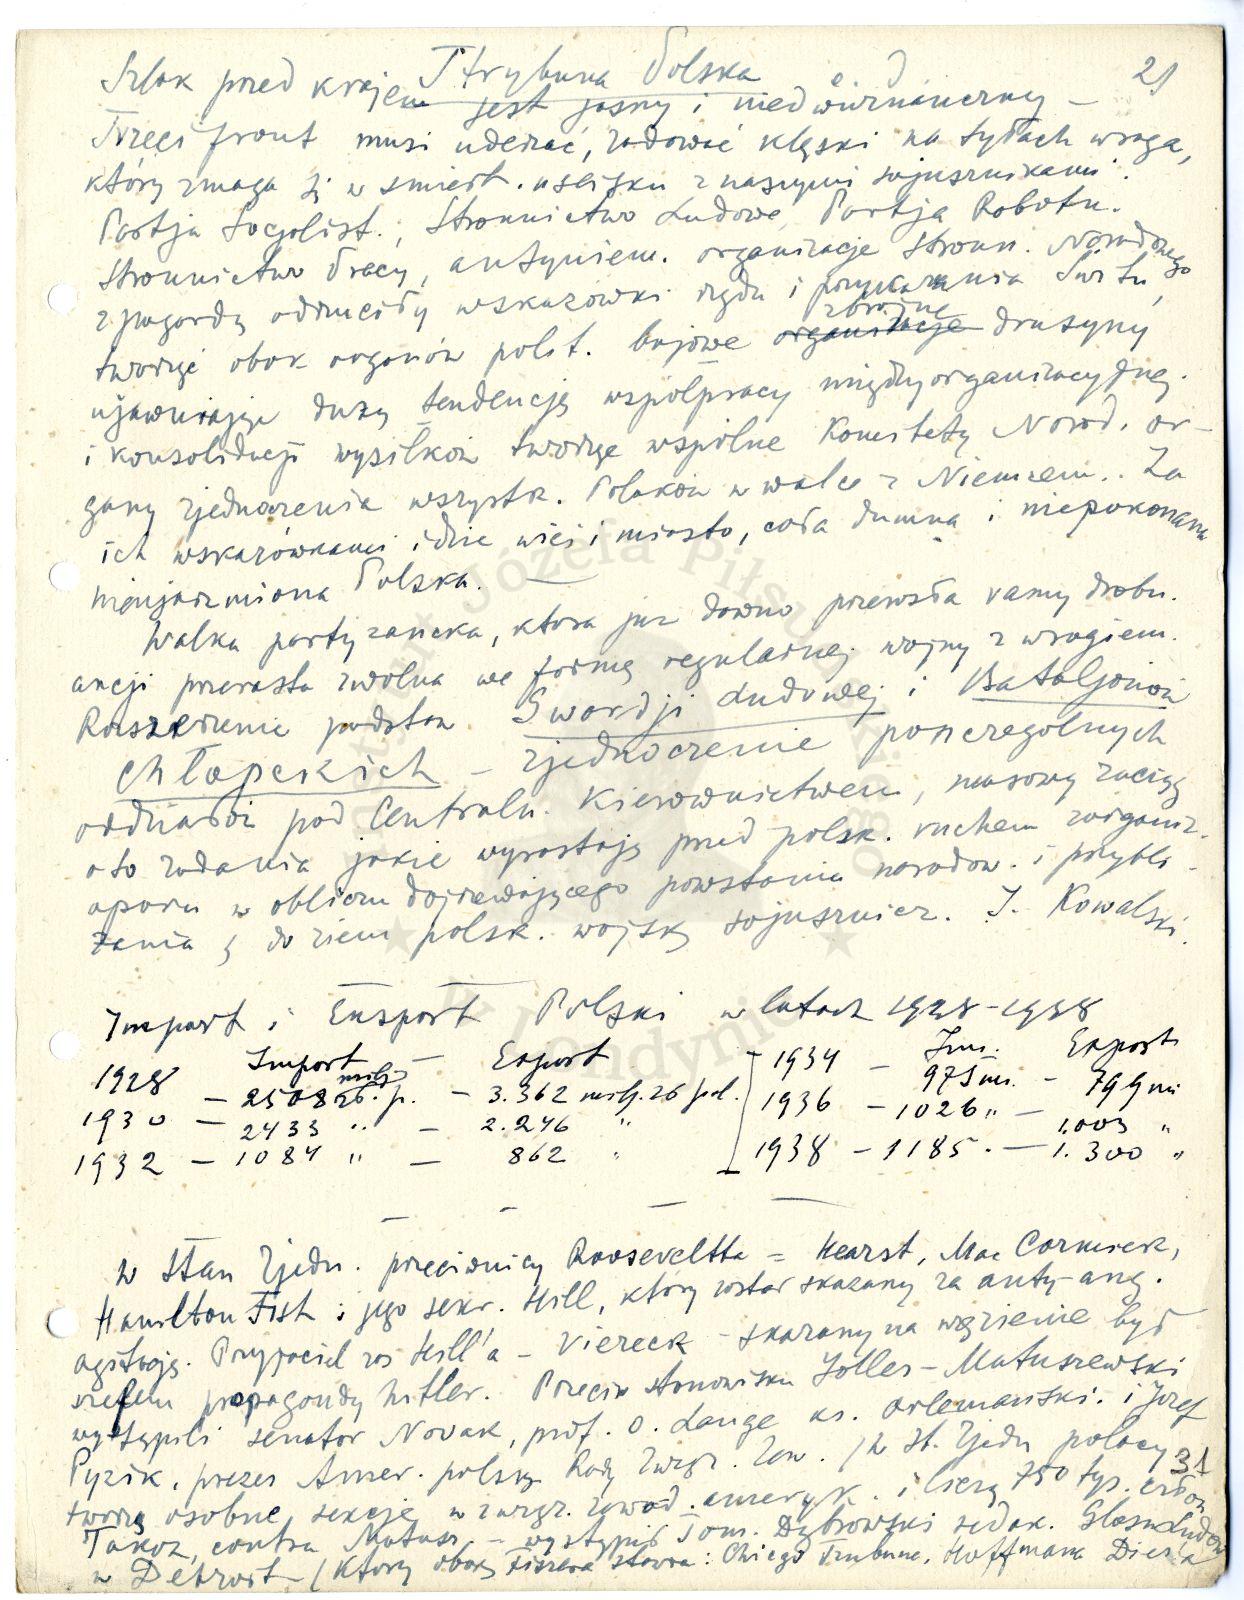 Trybuna Polska 21
Szlak przed krajem jest jasny i niedwuznaczny –
Trzeci front musi uderzać, zadawać klęski na tyłach wroga,
który zmaga się w śmiert. uścisku z naszymi sojusznikami.
Partja Socjalist., Stronnictwo Ludowe, Partja Robotn.
Stronnictwo Pracy, antyniem. organizacje Stronn. Narodowego
z pogardą odrzuciły wskazówki rządu i
tworząc obok organów polit. bojowe organizacje zbrojne drużyny
ujawniając dużą tendencję współpracy międzyorganizacyjnej.
i konsolidacji wysiłków tworzą wspólne Komitety Narod. or-
gany zjednoczenia wszystk. Polaków w walce z Niemcem. Za
ich wskazówkami idzie wieś i miasto, cała dumna i niepokonana
nieujarzmiona Polska. –
Walka partyzancka, która już dawno przeszła ramy drobn.
akcji przerasta zwolna we formę regularnej wojny z wrogiem.
Rozszerzenie podstaw Gwardji Ludowej i Bataljonów
Chłopskich – zjednoczenie poszczególnych
oddziałów pod Centraln. Kierownictwem, masowy zaciąg
oto zadania jakie wyrastają przed polsk. ruchem zorganiz.
oporu w obliczu dojrzewającego powstania narodow. i przybli-
żania się do ziem polsk. wojsk sojusznicz. J. Kowalski.
Import i Eksport Polski w latach 1928–1938
Import – Export
1928 – 2508 milj. p. – 3.362 milj. pol.
1930 – 2433 " – 2.246 "
1932 – 1084 " – 862 "
Im. Export
1934 – 975 m. – 799 mi
1936 – 1026 " – 1.003 "
1938 – 1185 . – 1.300 "
W Stan Zjedn. przeciwnicy Roosevelta = Hearst, Mac Cormick,
Hamilton Fish i jego sekr. Hill, który został skazany za anty-ang.
agitację. Przyjaciel zaś Hill'a – Viereck – skazany na więzienie był
szefem propagandy hitler. Przeciw stanowisku Jolles – Matuszewski
wystąpili senator Novak, prof. O. Lange ks. Orlemański. i Józef
Pyzik, prezes Amer. polskiej Rady Związ. Zaw. / W St. Zjedn polacy 31
tworzą osobne sekcje w związ. zawod. ameryk. i liczą 750 tys. człon
Także, contra Matusz – wystąpił Tom. Dąbrowski redak. Głosu Ludow
w Detroit – (który obok stawia: Chicago Tribune, Hoffmana